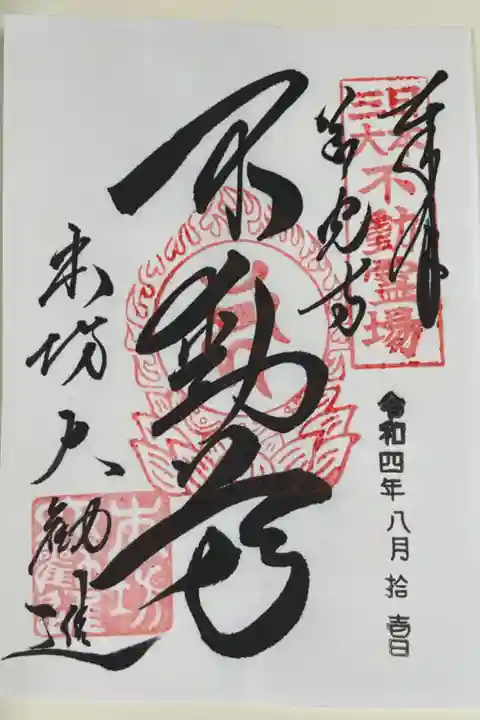 日本
三大不動霊場
奉拝
善光寺
不動尊
本坊大勧進
令和四年八月拾壱日